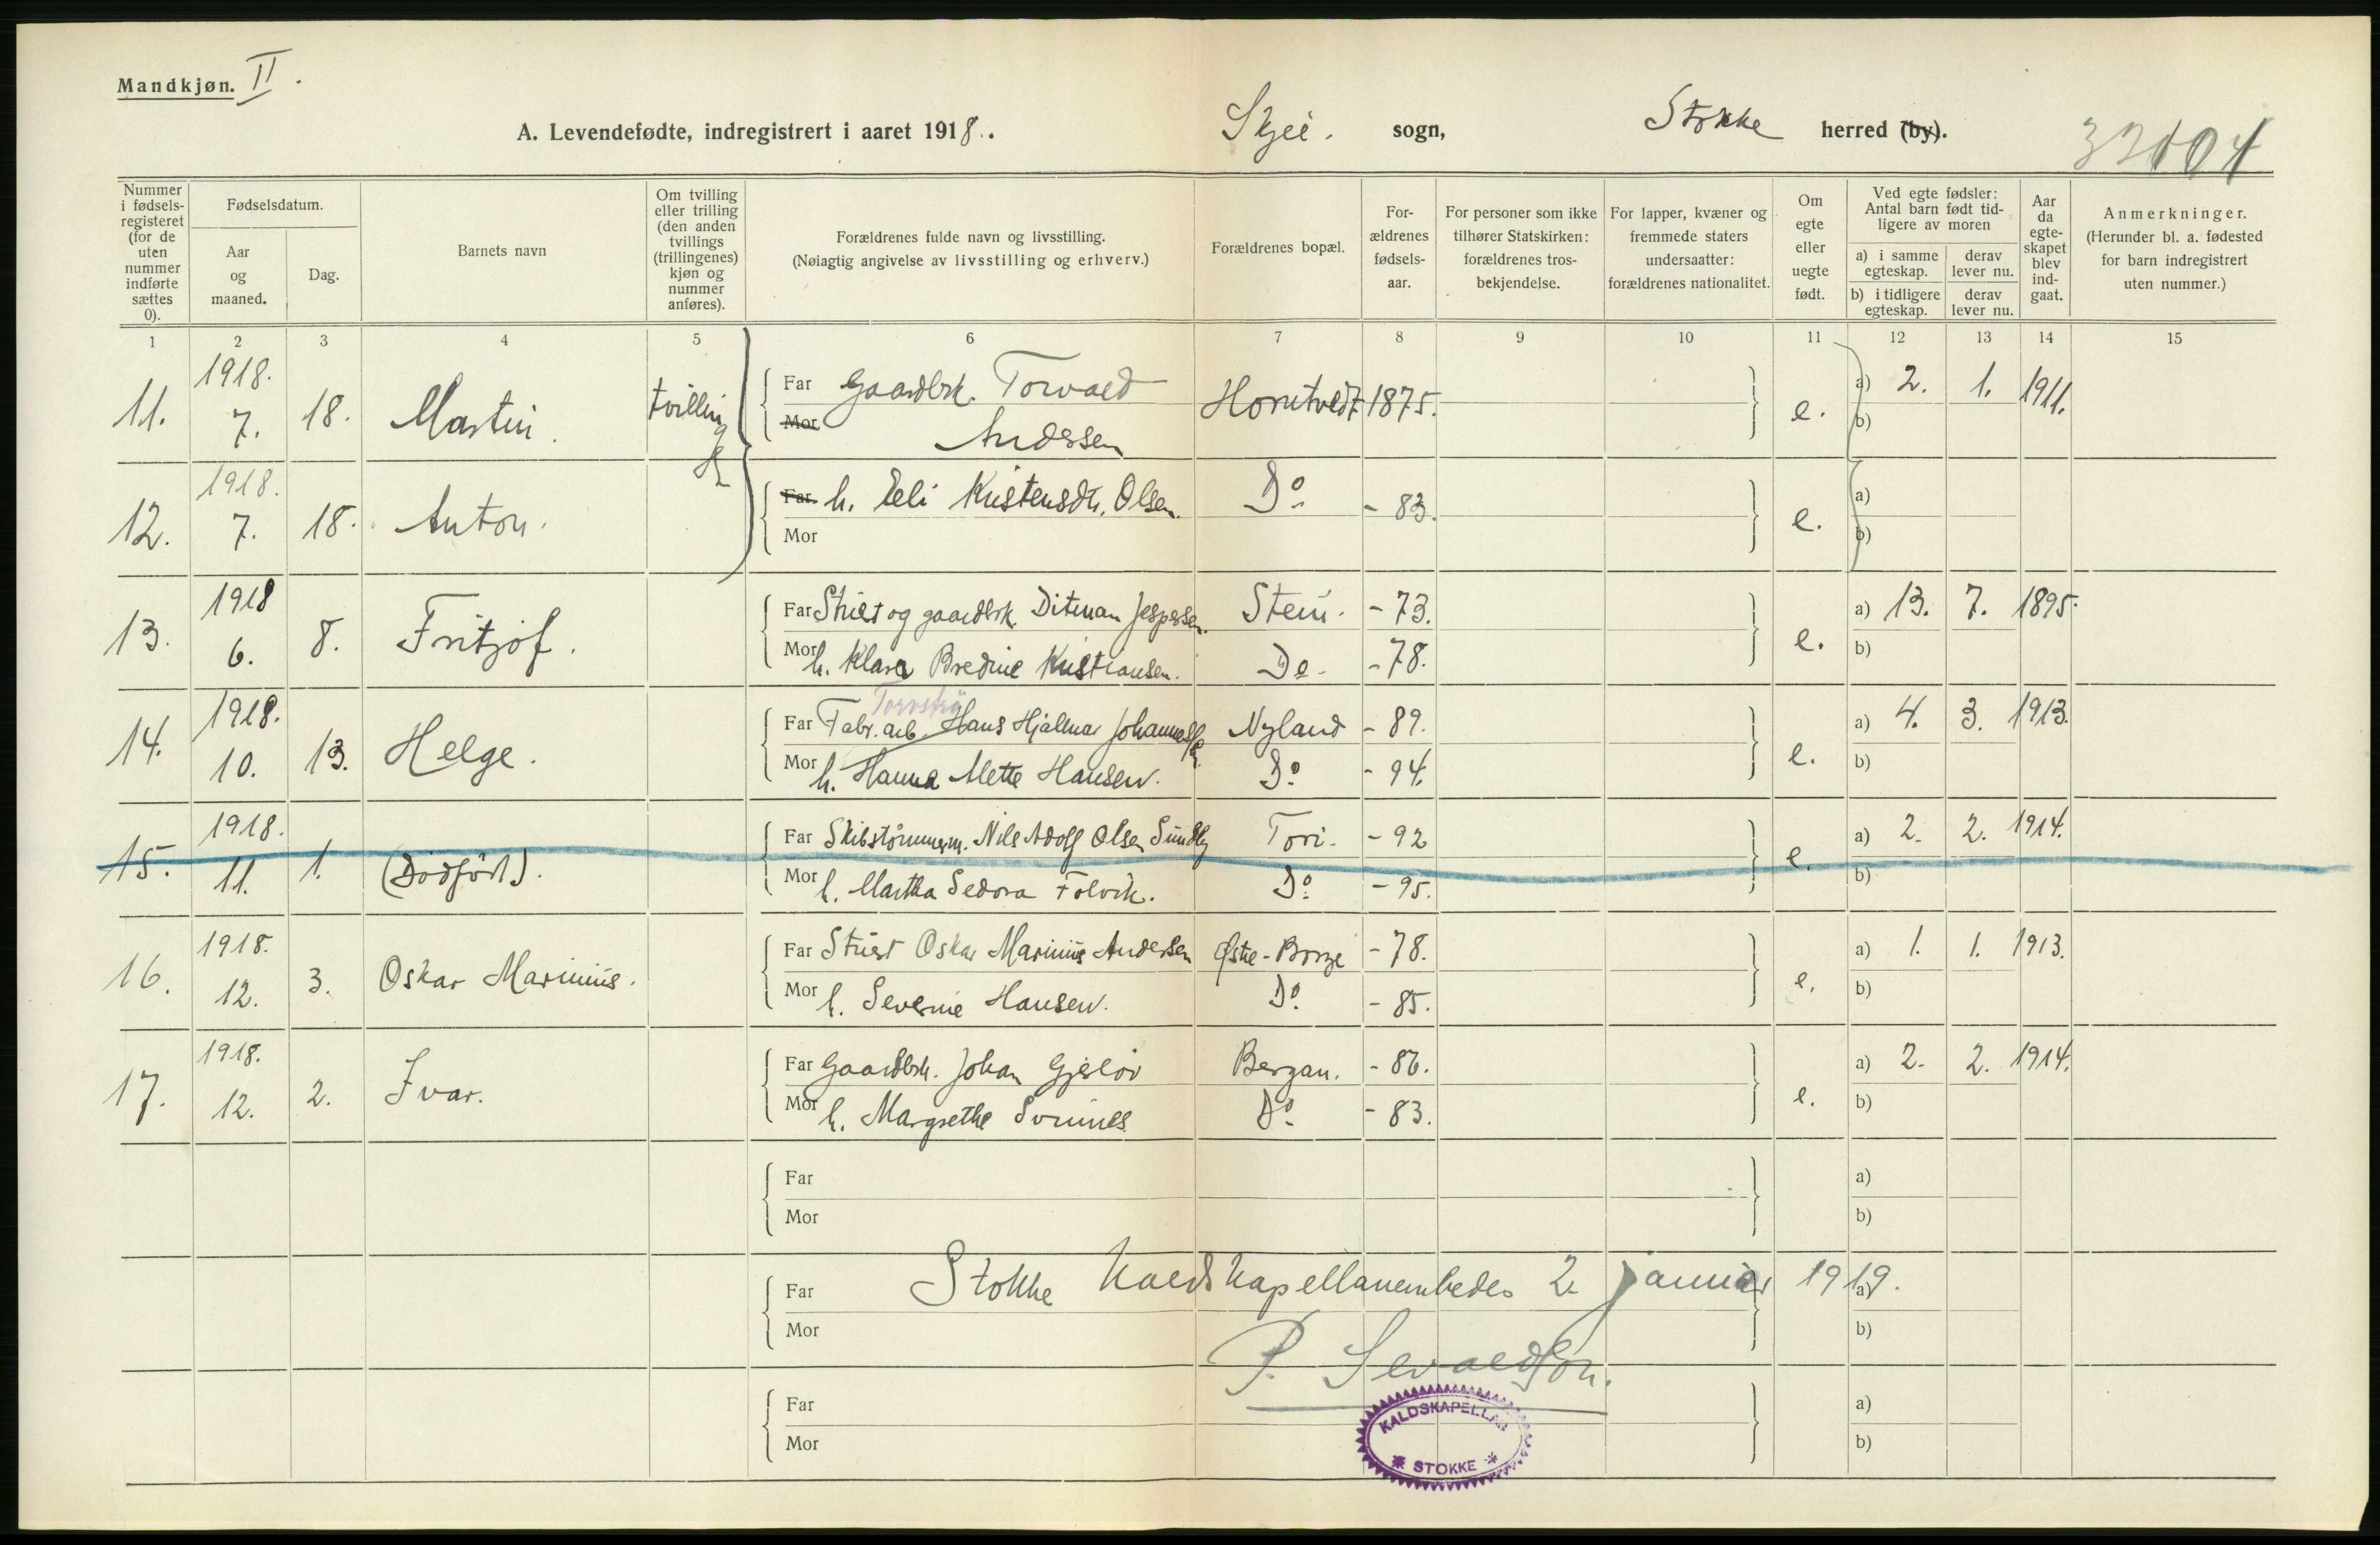 Mandkjøn. II.
A. Levendefødte, indregistrert i aaret 1918. Skjee. sogn, Stokke herred (by).
Nummer i fødsels-registeret (for de uten nummer indførte sættes 0).
Fødselsdatum.
Aar og maaned.
Dag.
Barnets navn
Om tvilling eller trilling (den anden tvillings (trillingenes) kjøn og nummer anføres).
Forældrenes fulde navn og livsstilling.
(Nøiagtig angivelse av livsstilling og erhverv.)
Forældrenes bopæl.
For-ældrenes fødsels-aar.
For personer som ikke tilhører Statskirken: forældrenes tros-bekjendelse.
For lapper, kvæner og fremmede staters undersaatter: forældrenes nationalitet.
Om egte eller uegte født.
Ved egte fødsler: Antal barn født tid-ligere av moren
a) i samme egteskap. derav lever nu.
b) i tidligere egteskap. derav lever nu.
Aar da egte-skapet blev ind-gaat.
Anmerkninger.
(Herunder bl. a. fødested for barn indregistrert uten nummer.)
1 2 3 4 5 6 7 8 9 10 11 12 13 14 15
11. 1918. 7. 18. Martin. tvilling Far Gaardbrk. Torvald Horntvedt 1875. e. a) 2. 1. 1911.
Mor Andersen b)
12. 1918. 7. 18. Anton. Far h. Eeli Kristensdtr. Olsen. Do - 83. e. a)
Mor b)
13. 1918 6. 8. Fritjof. Far og gaardbrk. Ditman Jespersen. Stein. - 73. e. a) 13. 7. 1895.
Mor h. Klara Bredine Kristiansen. Do - 78. b)
14. 1918. 10. 13. Helge. Far Fabr. arb. Hans Hjalmar Johannessen Nyland - 89. e. a) 4. 3. 1913.
Mor h. Hanna Mette Hansen. Do - 94. b)
15. 1918. 11. 1. (Dødfødt). Far Skibstømmerm. Nils Adolf Olsen Sundby Tori. - 92 e. a) 2. 2. 1914.
Mor h. Martha Sedora Folvik. Do - 95. b)
16. 1918. 12. 3. Oskar Marinius. Far Oskar Marinius Andersen Østre-Borge - 78. e. a) 1. 1. 1913.
Mor h. Severine Hansen. Do - 85. b)
17. 1918. 12. 2. Ivar. Far Gaardbrk. Johan Gjerløv Bergan. - 86. e. a) 2. 2. 1914.
Mor h. Margrethe Do - 83. b)
Far a)
Mor b)
Far Stokke Kaldskapellanembede 2 januar 1919. a)
Mor b)
P. Sevaldson.
Far a)
Mor b)
KALDSKAPELLAN
* STOKKE *